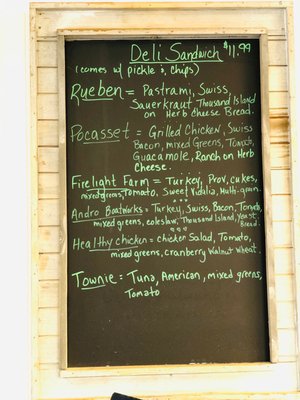 Deli Sandwich $11.99
(comes w/ pickle & chips)
Rueben = Pastrami, Swiss,
Sauerkraut, Thousand Island
on Herb Cheese Bread.
Pocasset = Grilled Chicken, Swiss
Bacon, mixed Greens, Tomato,
Guacamole, Ranch on Herb
Cheese.
Firelight Farm = Turkey, Prov, cukes,
mixed greens, Tomato, Sweet Vidalia, Multi-grain.
Andro Boatworks = Turkey, Swiss, Bacon, Tomato,
mixed greens, coleslaw, Thousand Island, Yeast
Bread.
Healthy chicken = chicken Salad, Tomato,
mixed greens, cranberry Walnut Wheat.
Townie = Tuna, American, mixed greens,
Tomato